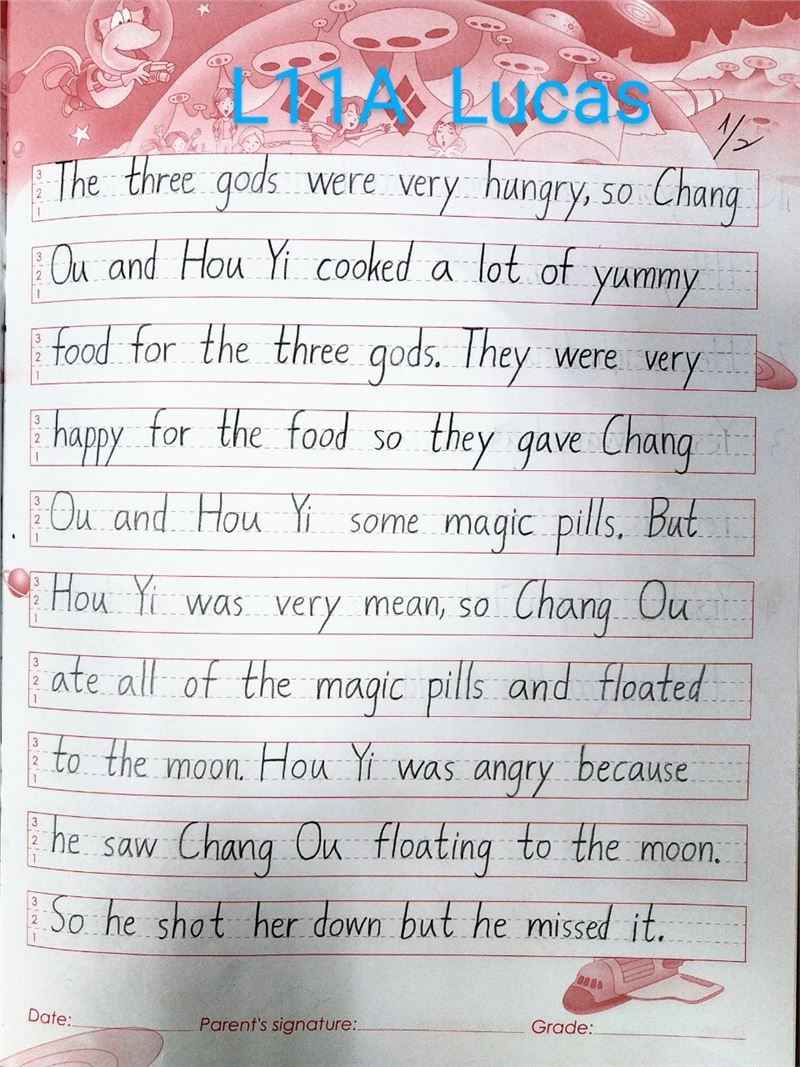 L11A Lucas
1/2
3 The three gods were very hungry, so Chang
2
1
3 Ou and Hou Yi cooked a lot of yummy
2
1
3 food for the three gods. They were very
2
1
3 happy for the food so they gave Chang
2
1
3 Ou and Hou Yi some magic pills. But
2
1
3 Hou Yi was very mean, so Chang Ou
2
1
3 ate all of the magic pills and floated
2
1
3 to the moon. Hou Yi was angry because
2
1
3 he saw Chang Ou floating to the moon.
2
1
3 So he shot her down but he missed it.
2
1
Date: Parent's signature: Grade: